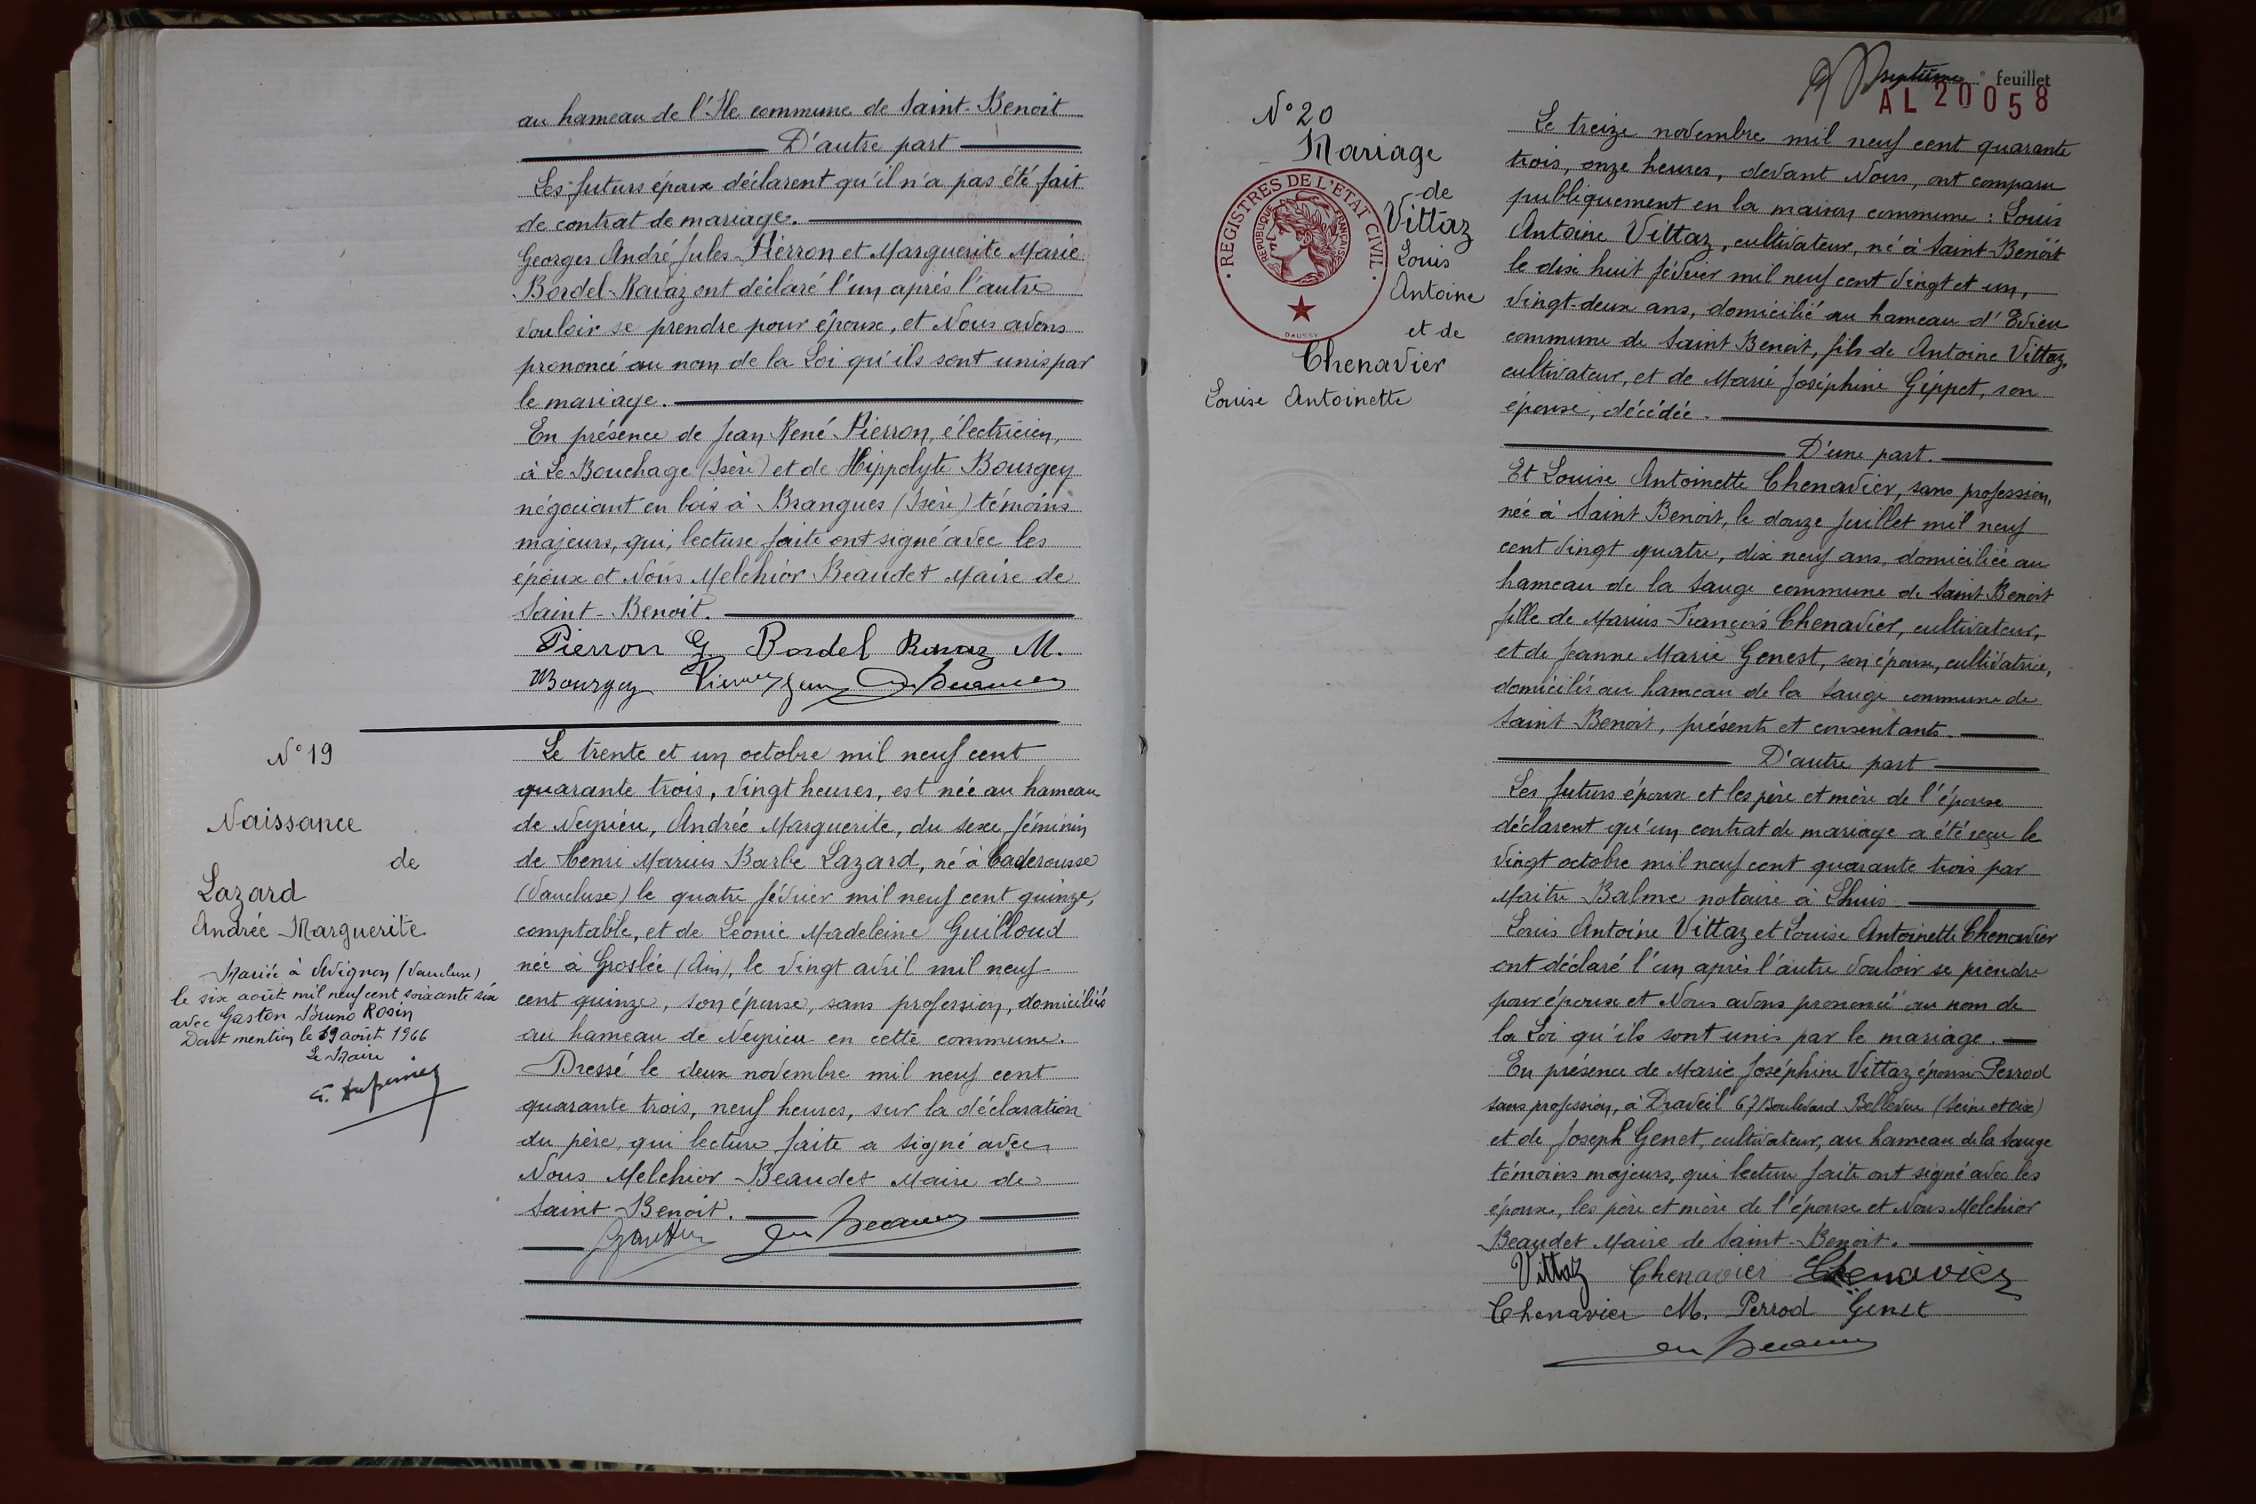 au hameau de l'Ile commune de Saint-Benoit
D'autre part
Les futurs époux déclarent qu'il n'a pas été fait
de contrat de mariage.
Georges André Jules Pierron et Marguerite Marie
Bordel-Ravaz ont déclaré l'un après l'autre
vouloir se prendre pour époux, et Nous avons
prononcé au nom de la Loi qu'ils sont unis par
le mariage.
En présence de Jean René Pierron, électricien,
à Le Bouchage (Isère) et de Hippolyte Bourgey
négociant en bois à Brangues (Isère) témoins
majeurs, qui, lecture faite ont signé avec les
époux et Nous Melchior Beaudet Maire de
Saint-Benoit.
Pierron G. Bordel Ravaz M.
Bourgey Pierron Jean
N° 19
Naissance
de
Lazard
Andrée Marguerite
Mariée à Avignon (Vaucluse)
le six août mil neuf cent soixante six
avec Gaston Bruno Rosin
Dont mention le 19 août 1966
Le Maire
Le trente et un octobre mil neuf cent
quarante trois, vingt heures, est née au hameau
de Neyrieu, Andrée Marguerite, du sexe féminin
de Henri Marius Barbe Lazard, né à Caderousse
(Vaucluse) le quatre février mil neuf cent quinze,
comptable, et de Léonie Madeleine Guilloud
née à Groslée (Ain), le vingt avril mil neuf
cent quinze, son épouse, sans profession, domiciliés
au hameau de Neyrieu en cette commune.
Dressé le deux novembre mil neuf cent
quarante trois, neuf heures, sur la déclaration
du père, qui lecture faite a signé avec
Nous Melchior Beaudet Maire de
Saint-Benoit.
septième feuillet
AL 20058
N° 20
Mariage
de
Vittaz
Louis
Antoine
et de
Chenavier
Louise Antoinette
REGISTRES DE L'ETAT CIVIL
REPUBLIQUE FRANÇAISE
DAUSSY
Le treize novembre mil neuf cent quarante
trois, onze heures, devant Nous, ont comparu
publiquement en la maison commune : Louis
Antoine Vittaz, cultivateur, né à Saint-Benoit
le dix huit février mil neuf cent vingt et un,
vingt-deux ans, domicilié au hameau d'Evieu
commune de Saint Benoit, fils de Antoine Vittaz,
cultivateur, et de Marie Joséphine Gippet, son
épouse, décédée.
D'une part.
Et Louise Antoinette Chenavier, sans profession,
née à Saint Benoit, le douze Juillet mil neuf
cent vingt quatre, dix neuf ans, domiciliée au
hameau de la Sauge commune de Saint Benoit
fille de Marius François Chenavier, cultivateur,
et de Jeanne Marie Genest, son épouse, cultivatrice,
domiciliés au hameau de la Sauge commune de
Saint-Benoit, présents et consentants.
D'autre part
Les futurs époux et les père et mère de l'épouse
déclarent qu'un contrat de mariage a été reçu le
vingt octobre mil neuf cent quarante trois par
Maitre Balme notaire à Lhuis
Louis Antoine Vittaz et Louise Antoinette Chenavier
ont déclaré l'un après l'autre vouloir se prendre
pour époux et Nous avons prononcé au nom de
la Loi qu'ils sont unis par le mariage.
En présence de Marie Joséphine Vittaz épouse Perrod
sans profession, à Draveil 67 Boulevard Bellevue (Seine et Oise)
et de Joseph Genet, cultivateur, au hameau de la Sauge
témoins majeurs, qui lecture faite ont signé avec les
époux, les père et mère de l'épouse et Nous Melchior
Beaudet Maire de Saint-Benoit.
Vittaz Chenavier Chenavier
Chenavier M. Perrod Genet